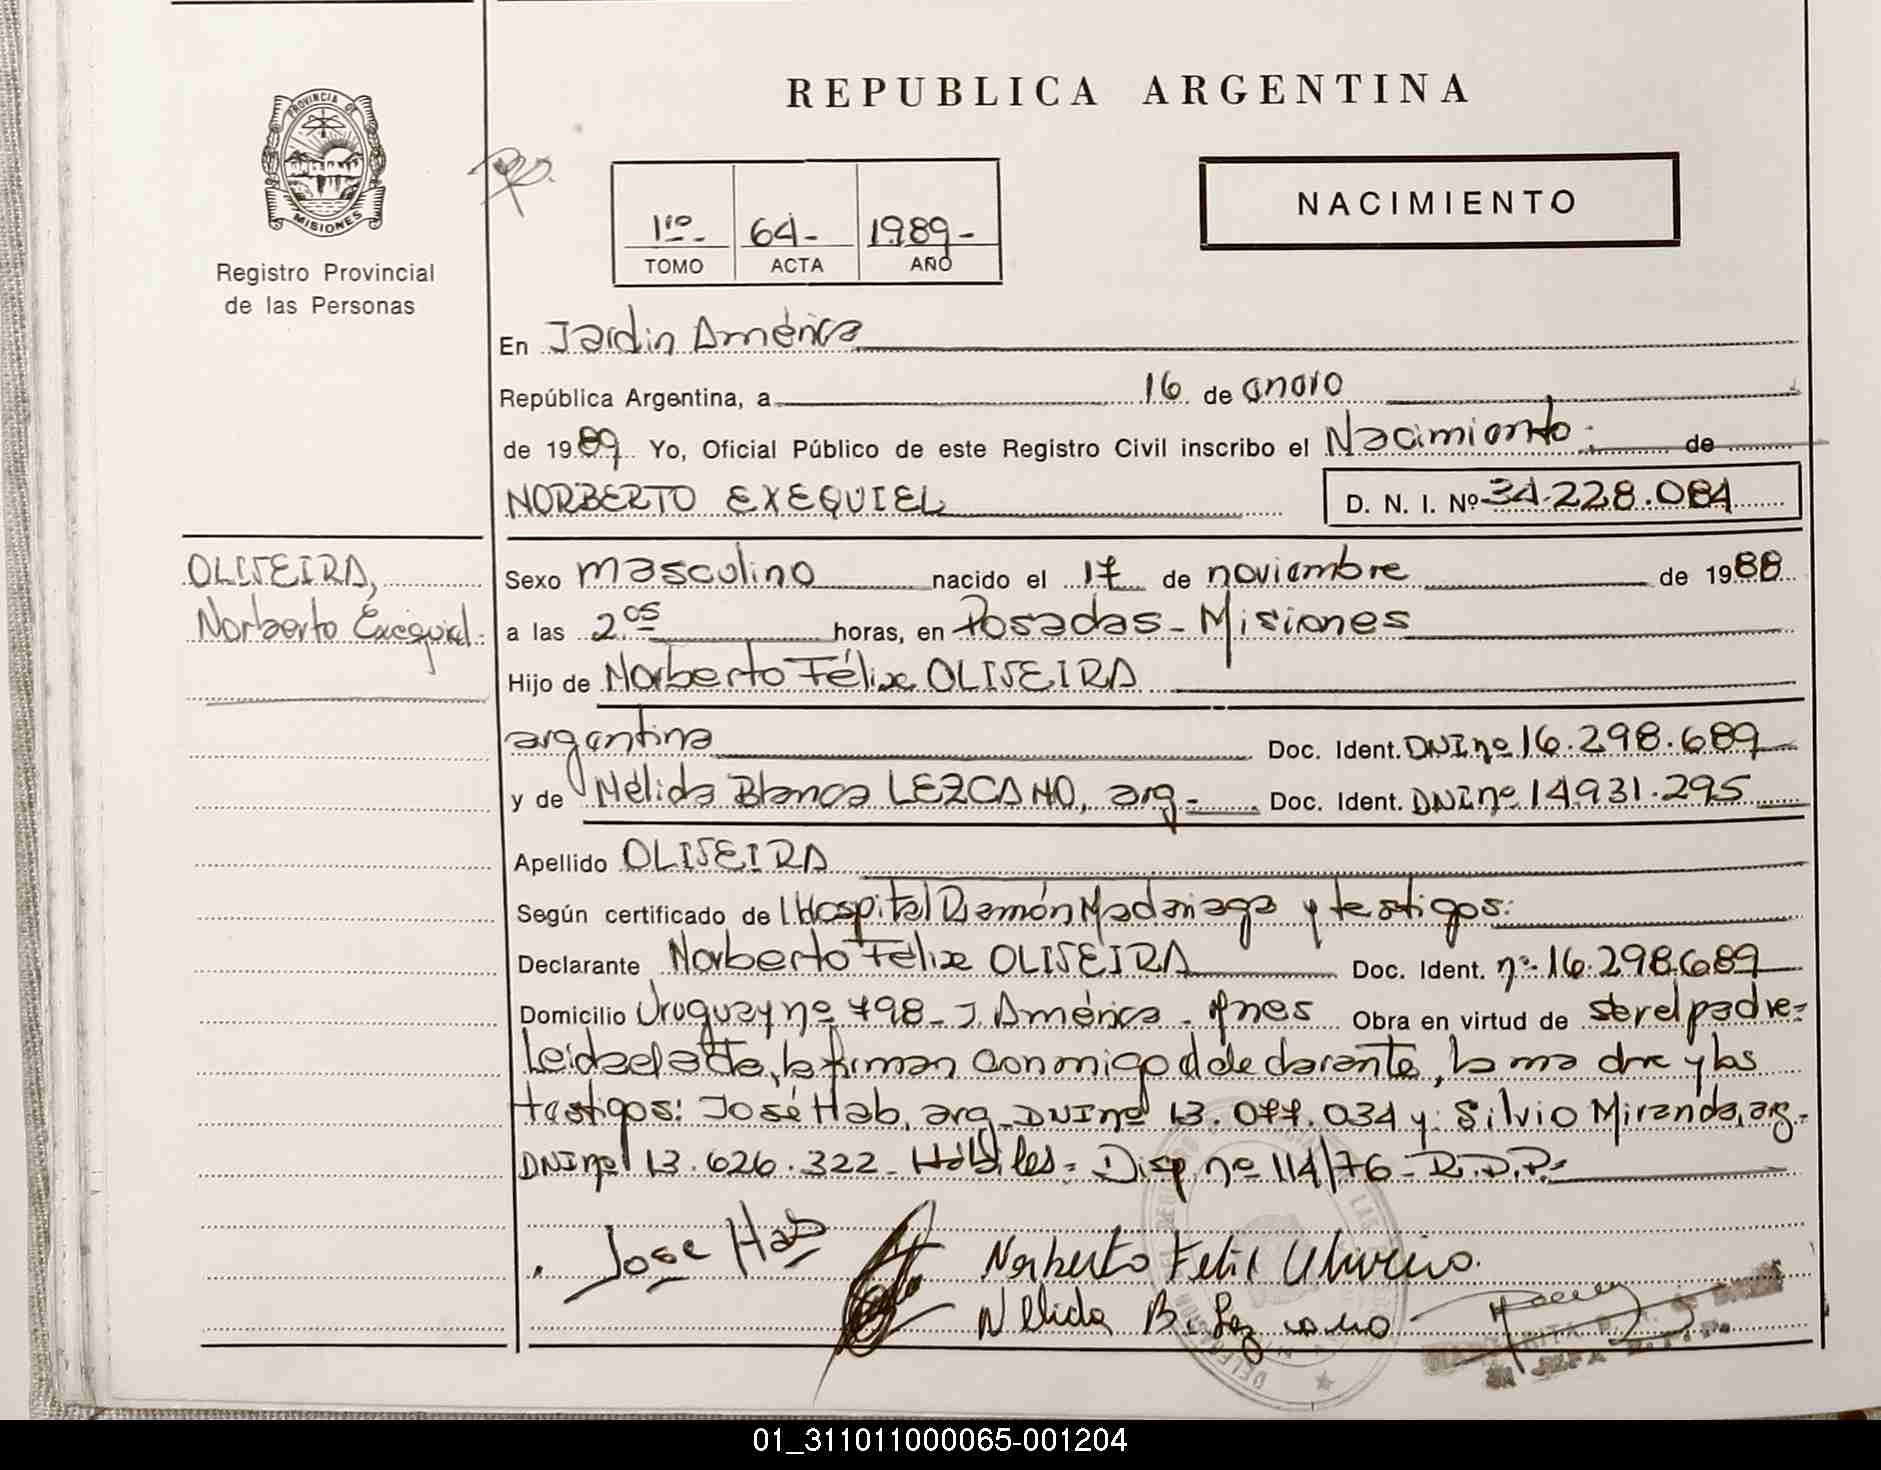 REPUBLICA ARGENTINA
PROVINCIA DE
MISIONES
Registro Provincial
de las Personas
1ro- 64- 1989-
TOMO ACTA AÑO
NACIMIENTO
En Jardin América
República Argentina, a 16 de enero
de 1989 Yo, Oficial Público de este Registro Civil inscribo el Nacimiento: de
NORBERTO EXEQUIEL D. N. I. Nº 34.228.084
OLIVEIRA,
Norberto Exequiel.
Sexo masculino nacido el 17 de noviembre de 1988
a las 2 05 horas, en Posadas - Misiones
Hijo de Norberto Félix OLIVEIRA
argentina Doc. Ident. DNI nº 16.298.689
y de Nélida Blanca LEZCANO, arg- Doc. Ident. DNI nº 14.931.295
Apellido OLIVEIRA
Según certificado de l Hospital Ramón Madariaga y testigos:
Declarante Norberto Félix OLIVEIRA Doc. Ident. nº 16.298.689
Domicilio Uruguay nº 798 - J. América - Mnes Obra en virtud de ser el padre-
Leída el acta, la firman conmigo el declarante, la madre y los
testigos: José Hab, arg. DNI nº 13.077.034 y Silvio Miranda, arg-
DNI nº 13.626.322 - Hábiles - Disp. nº 114/76 - R.D.P.-
Jose Hab
Norberto Felix Oliveira.
Nelida B. Lezcano
01_311011000065-001204